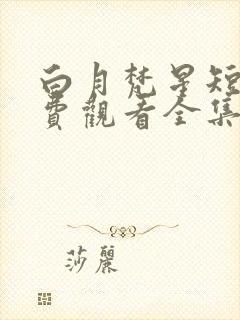 白月梵星短
費觀看全集
莎麗